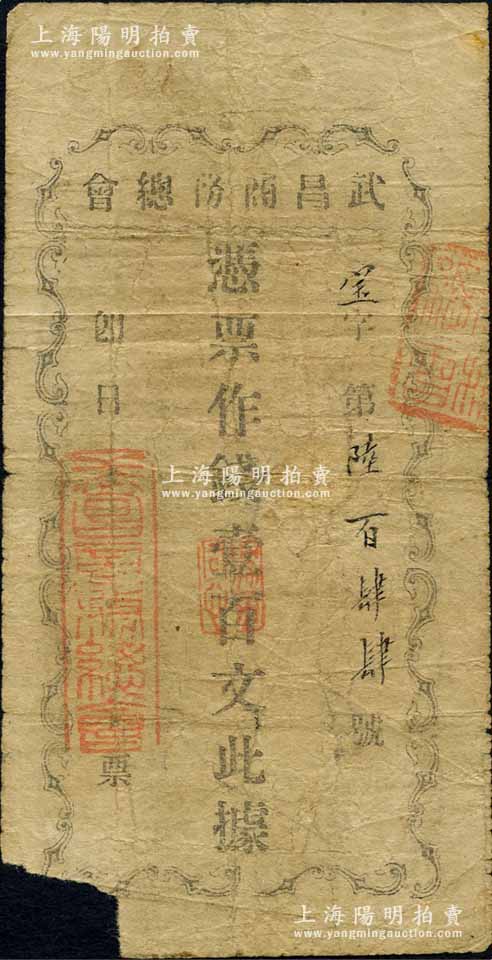 上海陽明拍賣
www.yangmingauction.com
武昌商防總會
宝字第陸百肆肆號
憑票作錢壹百文此據
即日
票
上海陽明拍賣
www.yangmingauction.com
上海陽明拍賣
www.yangmingauction.com